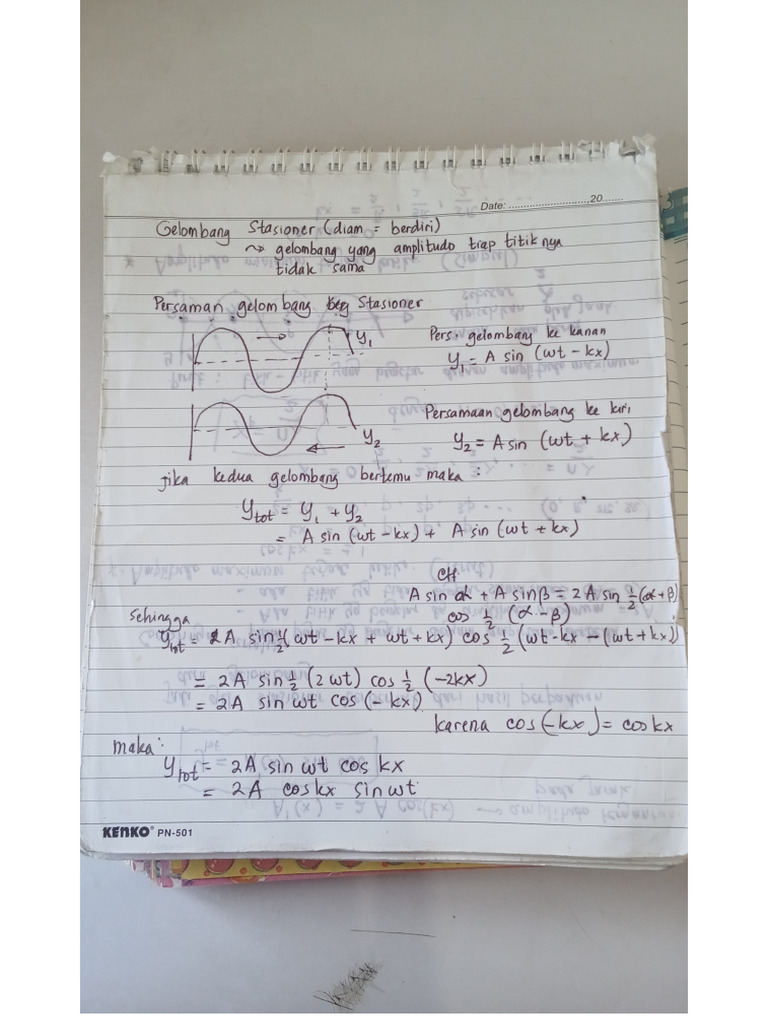 Date: ........................20......
Gelombang Stasioner (diam = berdiri)
↝ gelombang yang amplitudo tiap titik nya
tidak sama
Persaman gelombang Stasioner
y₁
Pers. gelombang ke kanan
y₁ = A sin (wt - kx)
Persamaan gelombang ke kiri
y₂
y₂ = A sin (wt + kx)
jika kedua gelombang bertemu maka :
ytot = y₁ + y₂
= A sin (wt - kx) + A sin (wt + kx)
A sin α + A sin β = 2 A sin ½ (α + β)
cos ½ (α - β)
sehingga
ytot = 2A sin ½ (wt - kx + wt + kx) cos ½ (wt - kx - (wt + kx))
= 2A sin ½ (2wt) cos ½ (-2kx)
= 2A sin wt cos (- kx)
karena cos (-kx) = cos kx
maka :
ytot = 2A sin wt cos kx
= 2A cos kx sin wt
KENKO® PN-501